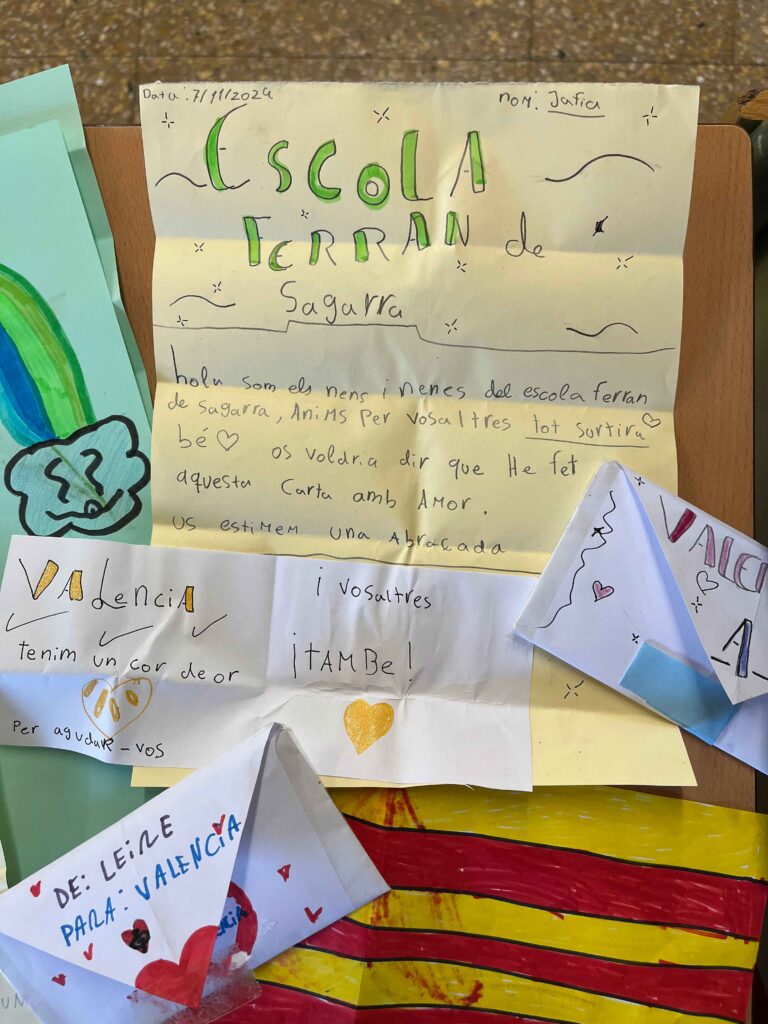 Data: 7/11/2024
nom: Jafia
ESCOLA
FERRAN de
Sagarra
hola som els nens i nenes del escola ferran
de sagarra, Anims per vosaltres tot sortira
bé os voldria dir que He fet
aquesta Carta amb Amor.
us estimem una Abraçada
VALENCIA
tenim un cor de or
Per agudar-vos
i vosaltres
¡TAMBe!
VALEN
A
DE: LEIRE
PARA: VALENCIA